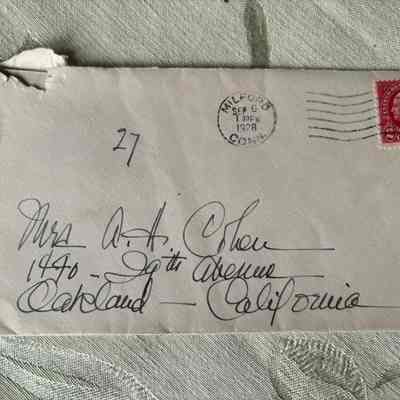 MILFORD
SEP 6
1 PM
1928
CONN.
27
Mrs A. H. Cohen
1440 - 29th Avenue
Oakland - California